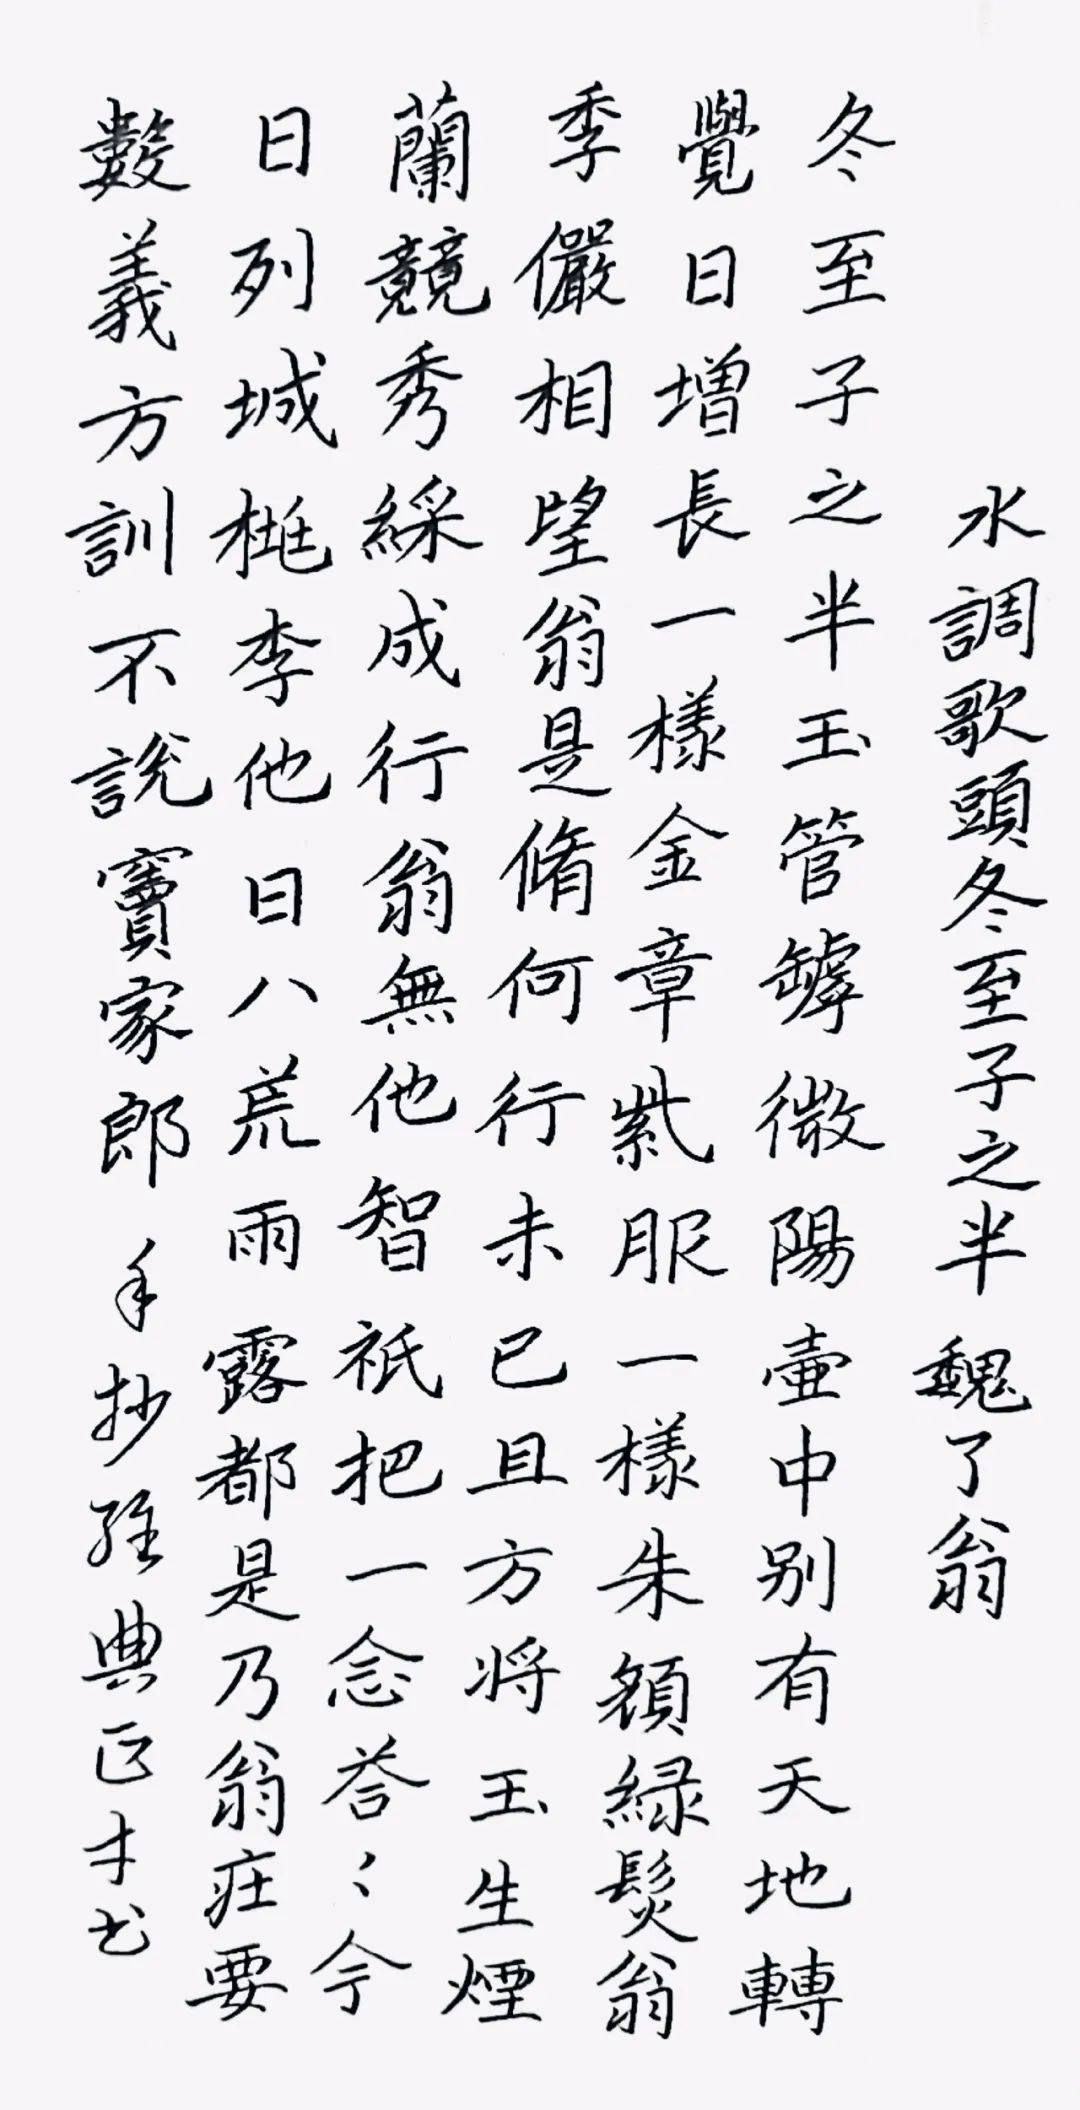 水調歌頭冬至子之半 魏了翁
冬至子之半玉管罅微陽壷中别有天地轉
覺日增長一樣金章紫服一樣朱顔緑鬓翁
季儼相望翁是脩何行未已且方将玉生煙
蘭競秀綵成行翁無他智祇把一念荅〻今
日列城桃李他日八荒雨露都是乃翁庄要
數義方訓不說竇家郎 手抄經典 匡才书